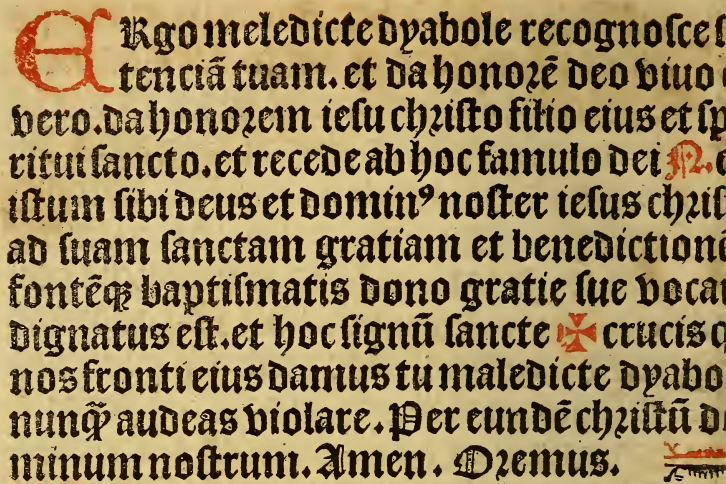 ERgo meledicte dyabole recognosce
tenciā tuam. et da honorē deo viuo
vero. da honorem iesu christo filio eius et sp
ritui sancto. et recede ab hoc famulo dei N.
istum sibi deus et dominꝰ noster iesus chris
ad suam sanctam gratiam et benedictionē
fontēqꝫ baptismatis dono gratie sue voca
dignatus est. et hoc signū sancte ✠ crucis q
nos fronti eius damus tu maledicte dyabo
nunq̄ audeas violare. Per eundē christū d
minum nostrum. Amen. Oremus.